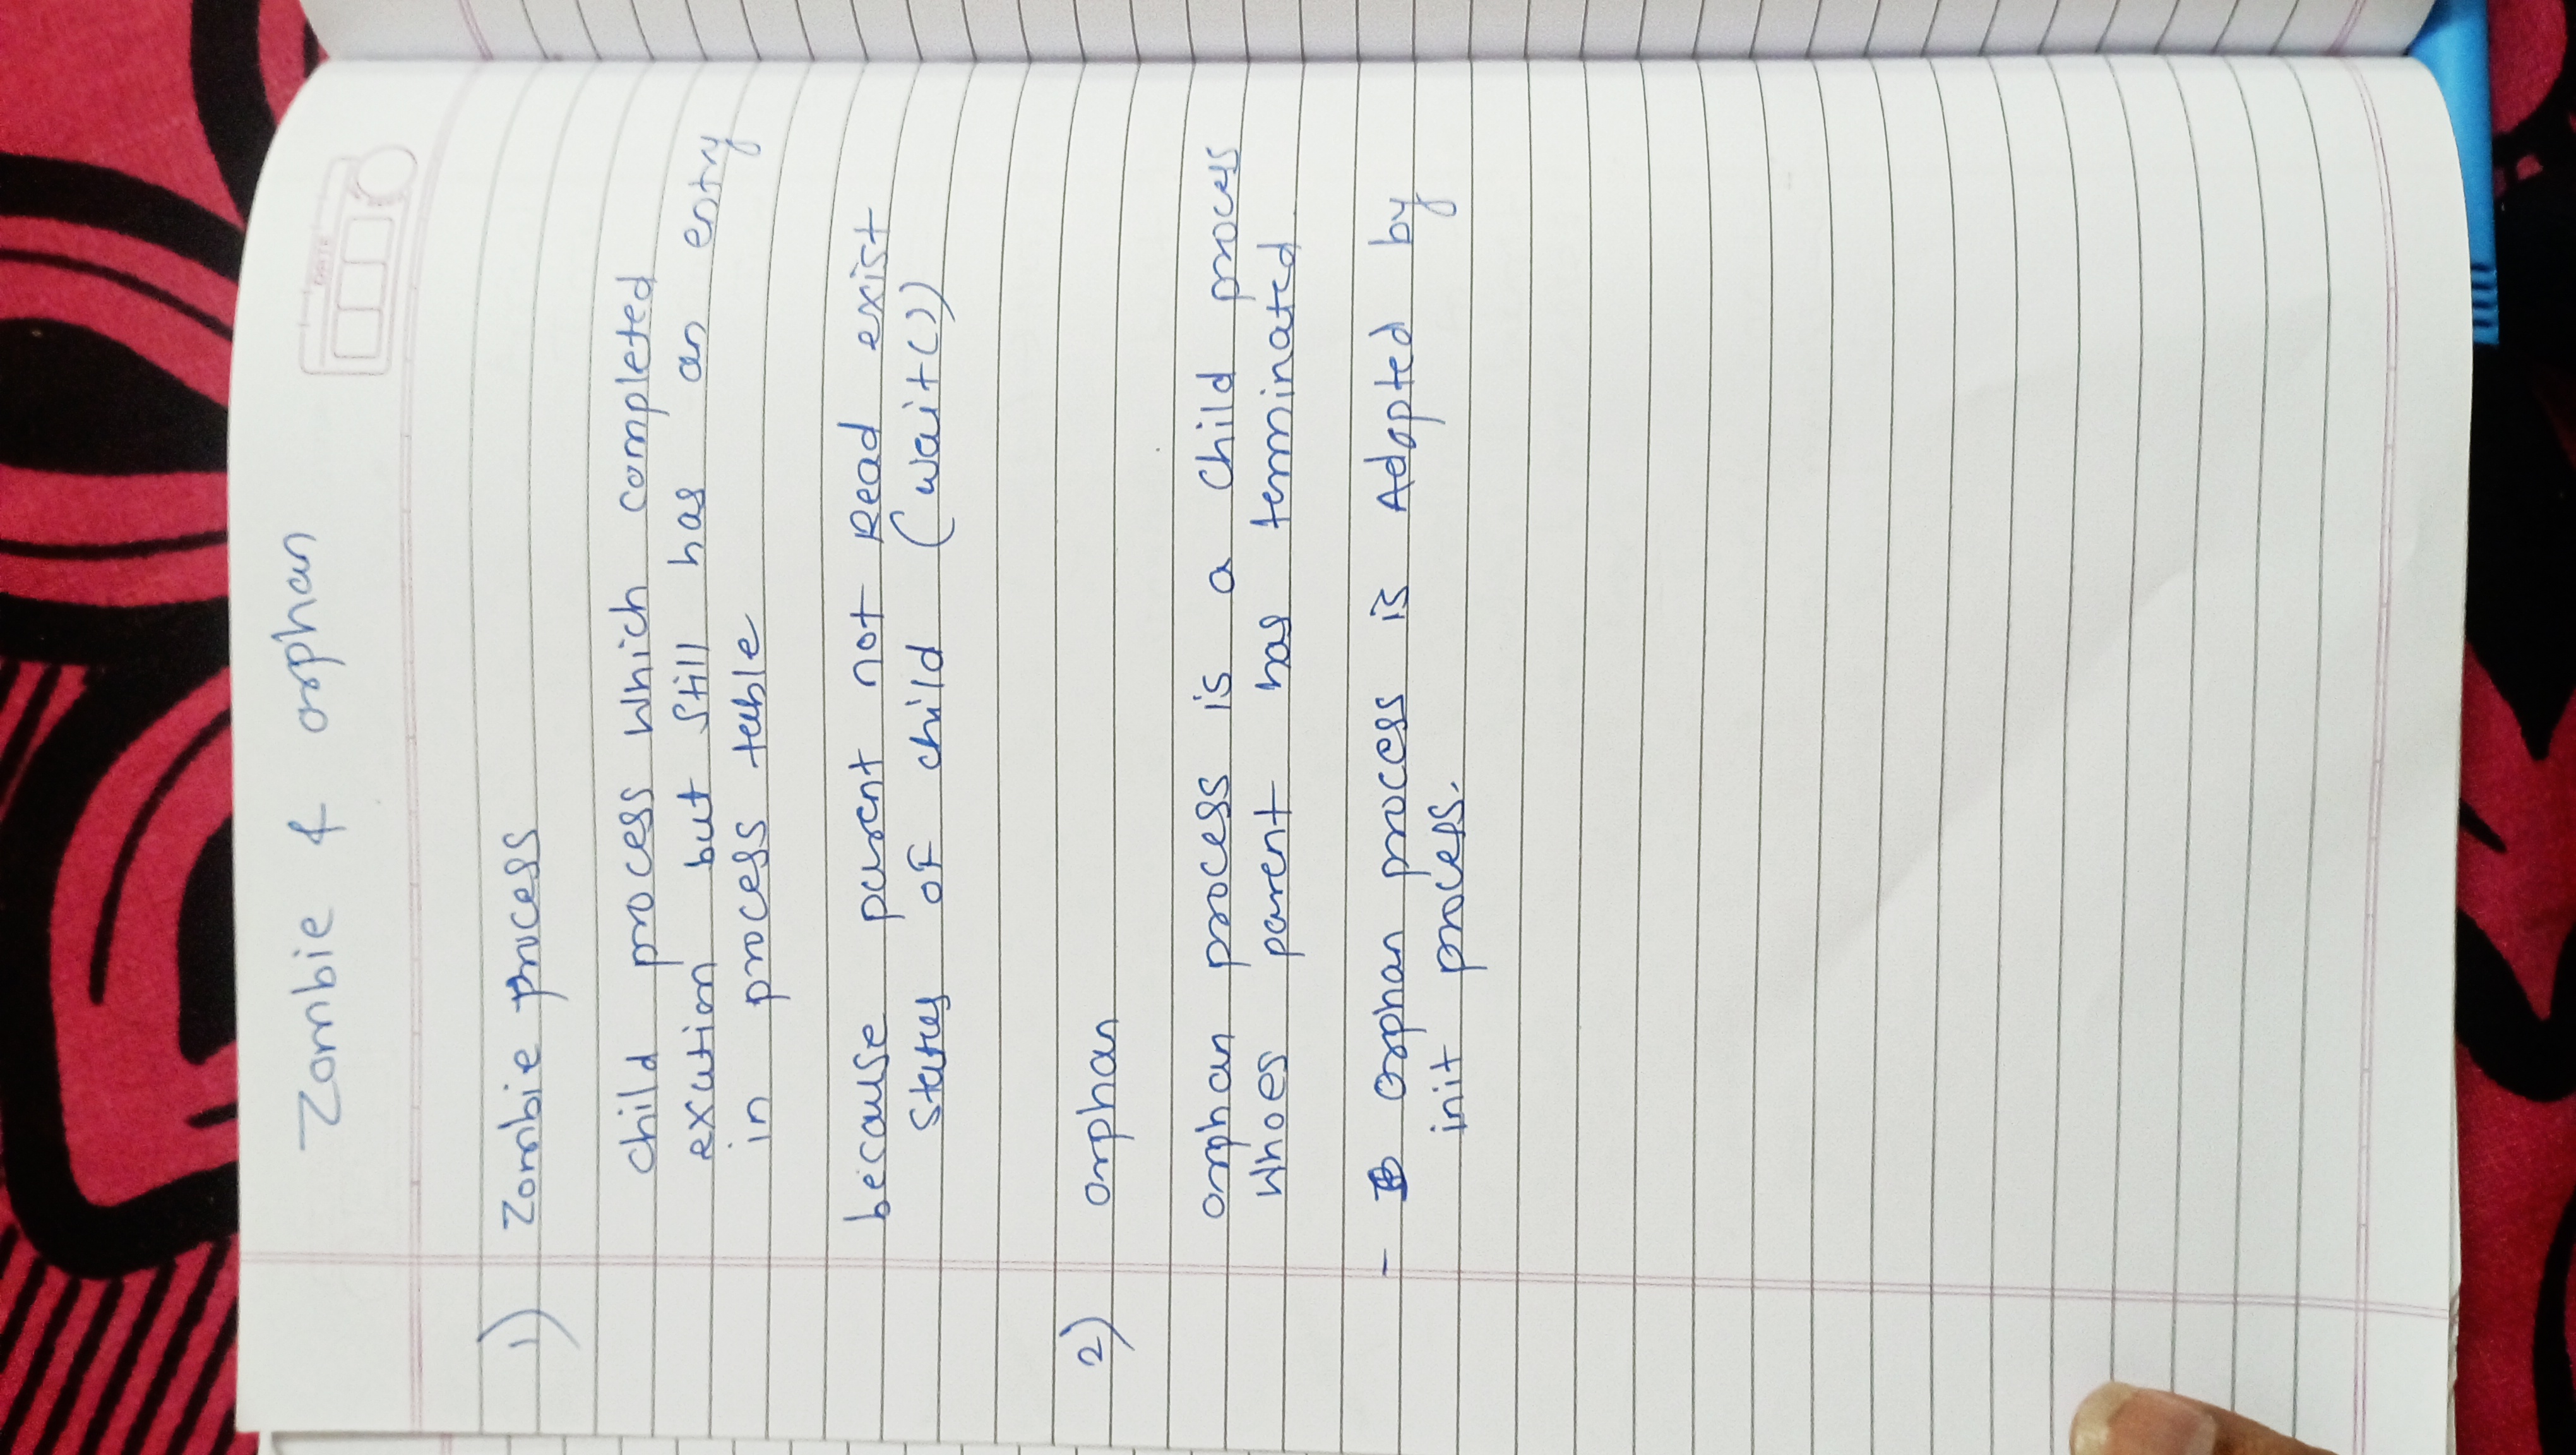 Zombie & orphan
DATE
1) Zombie process
child process which completed
exution but still has an entry
in process table
because parent not Read exist
status of child (wait())
2) orphan
orphan process is a child process
whoes parent has terminated
- orphan process is Adopted by
init process.